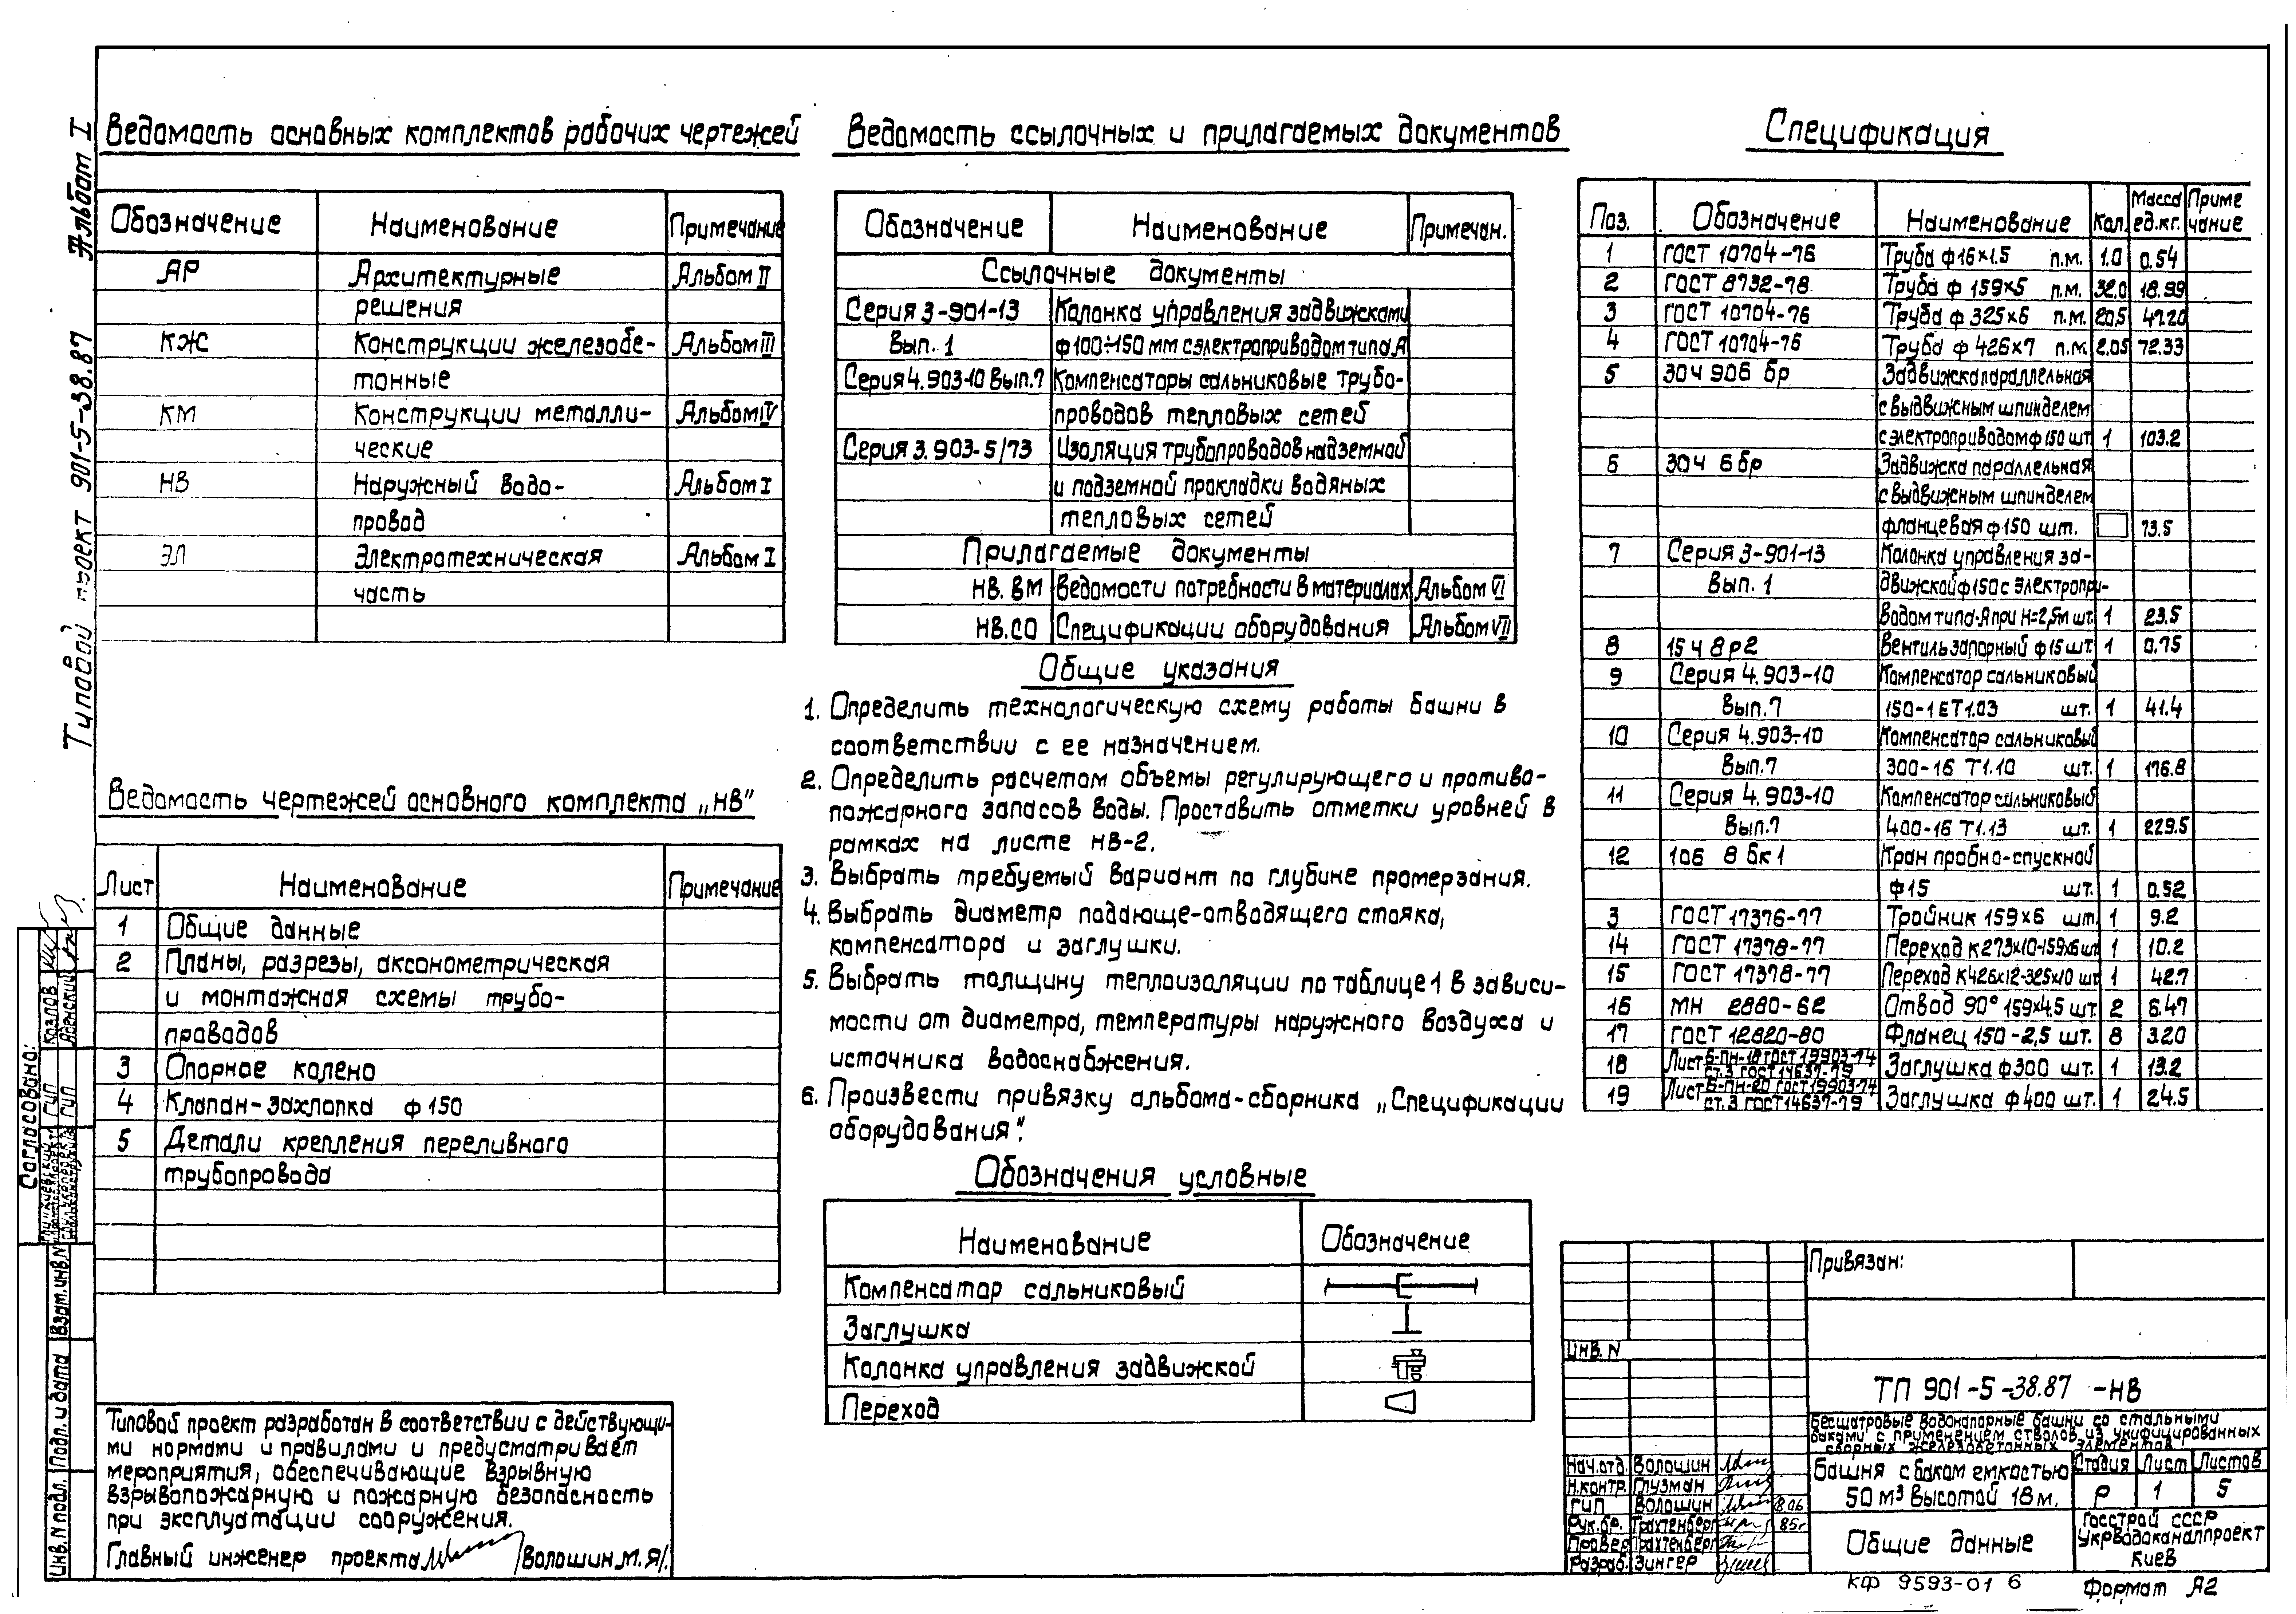 Альбом I
Типовой проект 901-5-38.87
Ведомость основных комплектов рабочих чертежей
Обозначение Наименование Примечание
АР Архитектурные Альбом II
решения
КЖ Конструкции железобе- Альбом III
тонные
КМ Конструкции металли- Альбом IV
ческие
НВ Наружный водо- Альбом I
провод
ЭЛ Электротехническая Альбом I
часть
Ведомость чертежей основного комплекта „НВ"
Лист Наименование Примечание
1 Общие данные
2 Планы, разрезы, аксонометрическая
и монтажная схемы трубо-
проводов
3 Опорное колено
4 Клапан-захлопка ф150
5 Детали крепления переливного
трубопровода
Типовой проект разработан в соответствии с действующи-
ми нормами и правилами и предусматривает
мероприятия, обеспечивающие взрывную
взрывопожарную и пожарную безопасность
при эксплуатации сооружения.
Главный инженер проекта /Волошин М.Я/.
Ведомость ссылочных и прилагаемых документов
Обозначение Наименование Примечан.
Ссылочные документы
Серия 3-901-13 Колонка управления задвижками
Вып. 1 ф100÷150 мм с электроприводом типа А
Серия 4.903-10 Вып.7 Компенсаторы сальниковые трубо-
проводов тепловых сетей
Серия 3.903-5/73 Изоляция трубопроводов надземной
и подземной прокладки водяных
тепловых сетей
Прилагаемые документы
НВ.ВМ Ведомости потребности в материалах Альбом VI
НВ.СО Спецификации оборудования Альбом VII
Общие указания
1. Определить технологическую схему работы башни в
соответствии с ее назначением.
2. Определить расчетом объемы регулирующего и противо-
пожарного запасов воды. Проставить отметки уровней в
рамках на листе НВ-2.
3. Выбрать требуемый вариант по глубине промерзания.
4. Выбрать диаметр подающе-отводящего стояка,
компенсатора и заглушки.
5. Выбрать толщину теплоизоляции по таблице 1 в зависи-
мости от диаметра, температуры наружного воздуха и
источника водоснабжения.
6. Произвести привязку альбома-сборника „Спецификации
оборудования".
Обозначения условные
Наименование Обозначение
Компенсатор сальниковый
Заглушка
Колонка управления задвижкой
Переход
Спецификация
Поз. Обозначение Наименование Кол. Масса ед.кг. Приме чание
1 ГОСТ 10704-76 Труба ф16×1.5 п.м. 1.0 0.54
2 ГОСТ 8732-78 Труба ф 159×5 п.м. 32.0 18.99
3 ГОСТ 10704-76 Труба ф 325×6 п.м. 20,5 47.20
4 ГОСТ 10704-76 Труба ф 426×7 п.м. 2.05 72.33
5 30ч 906 бр Задвижка параллельная
с выдвижным шпинделем
с электроприводом ф150 шт 1 103.2
6 30ч 6 бр Задвижка параллельная
с выдвижным шпинделем
фланцевая ф150 шт. 73.5
7 Серия 3-901-13 Колонка управления за-
Вып. 1 движкой ф150 с электропри-
водом типа-А при Н=2,5м шт. 1 23.5
8 15ч 8р2 Вентиль запорный ф15 шт. 1 0.75
9 Серия 4.903-10 Компенсатор сальниковый
Вып.7 150-1 ЕТ1.03 шт. 1 41.4
10 Серия 4.903-10 Компенсатор сальниковый
Вып.7 300-16 Т1.10 шт. 1 176.8
11 Серия 4.903-10 Компенсатор сальниковый
Вып.7 400-16 Т1.13 шт. 1 229.5
12 10б 8 бк1 Кран пробно-спускной
ф15 шт. 1 0.52
3 ГОСТ 17376-77 Тройник 159×6 шт. 1 9.2
14 ГОСТ 17378-77 Переход К273×10-159×6 шт 1 10.2
15 ГОСТ 17378-77 Переход К426×12-325×10 шт 1 42.7
16 МН 2880-62 Отвод 90° 159×4.5 шт. 2 6.47
17 ГОСТ 12820-80 Фланец 150-2,5 шт. 8 3.20
18 Лист Б-ПН-18 ГОСТ 19903-74 Заглушка ф300 шт. 1 13.2
ст.3 ГОСТ 14637-79
19 Лист Б-ПН-20 ГОСТ 19903-74 Заглушка ф400 шт. 1 24.5
ст.3 ГОСТ 14637-79
Привязан:
ИНВ. N
ТП 901-5-38.87 -НВ
Бесшатровые водонапорные башни со стальными
баками с применением стволов из унифицированных
сборных железобетонных элементов
Башня с баком емкостью
50 м³ высотой 18 м.
Стадия Лист Листов
Р 1 5
Общие данные
Госстрой СССР
Укрводоканалпроект
Киев
Нач.отд. Волошин
Н.контр. Глузман
ГИП Волошин
Рук.бр. Трахтенберг 85г
Провер Трахтенберг
Разраб. Зингер
КФ 9593-01 6
Формат А2
Согласовано:
ГИП Козлов
ГИП Аденский
Взам.инв.N
Подп. и дата
Инв.N подл.